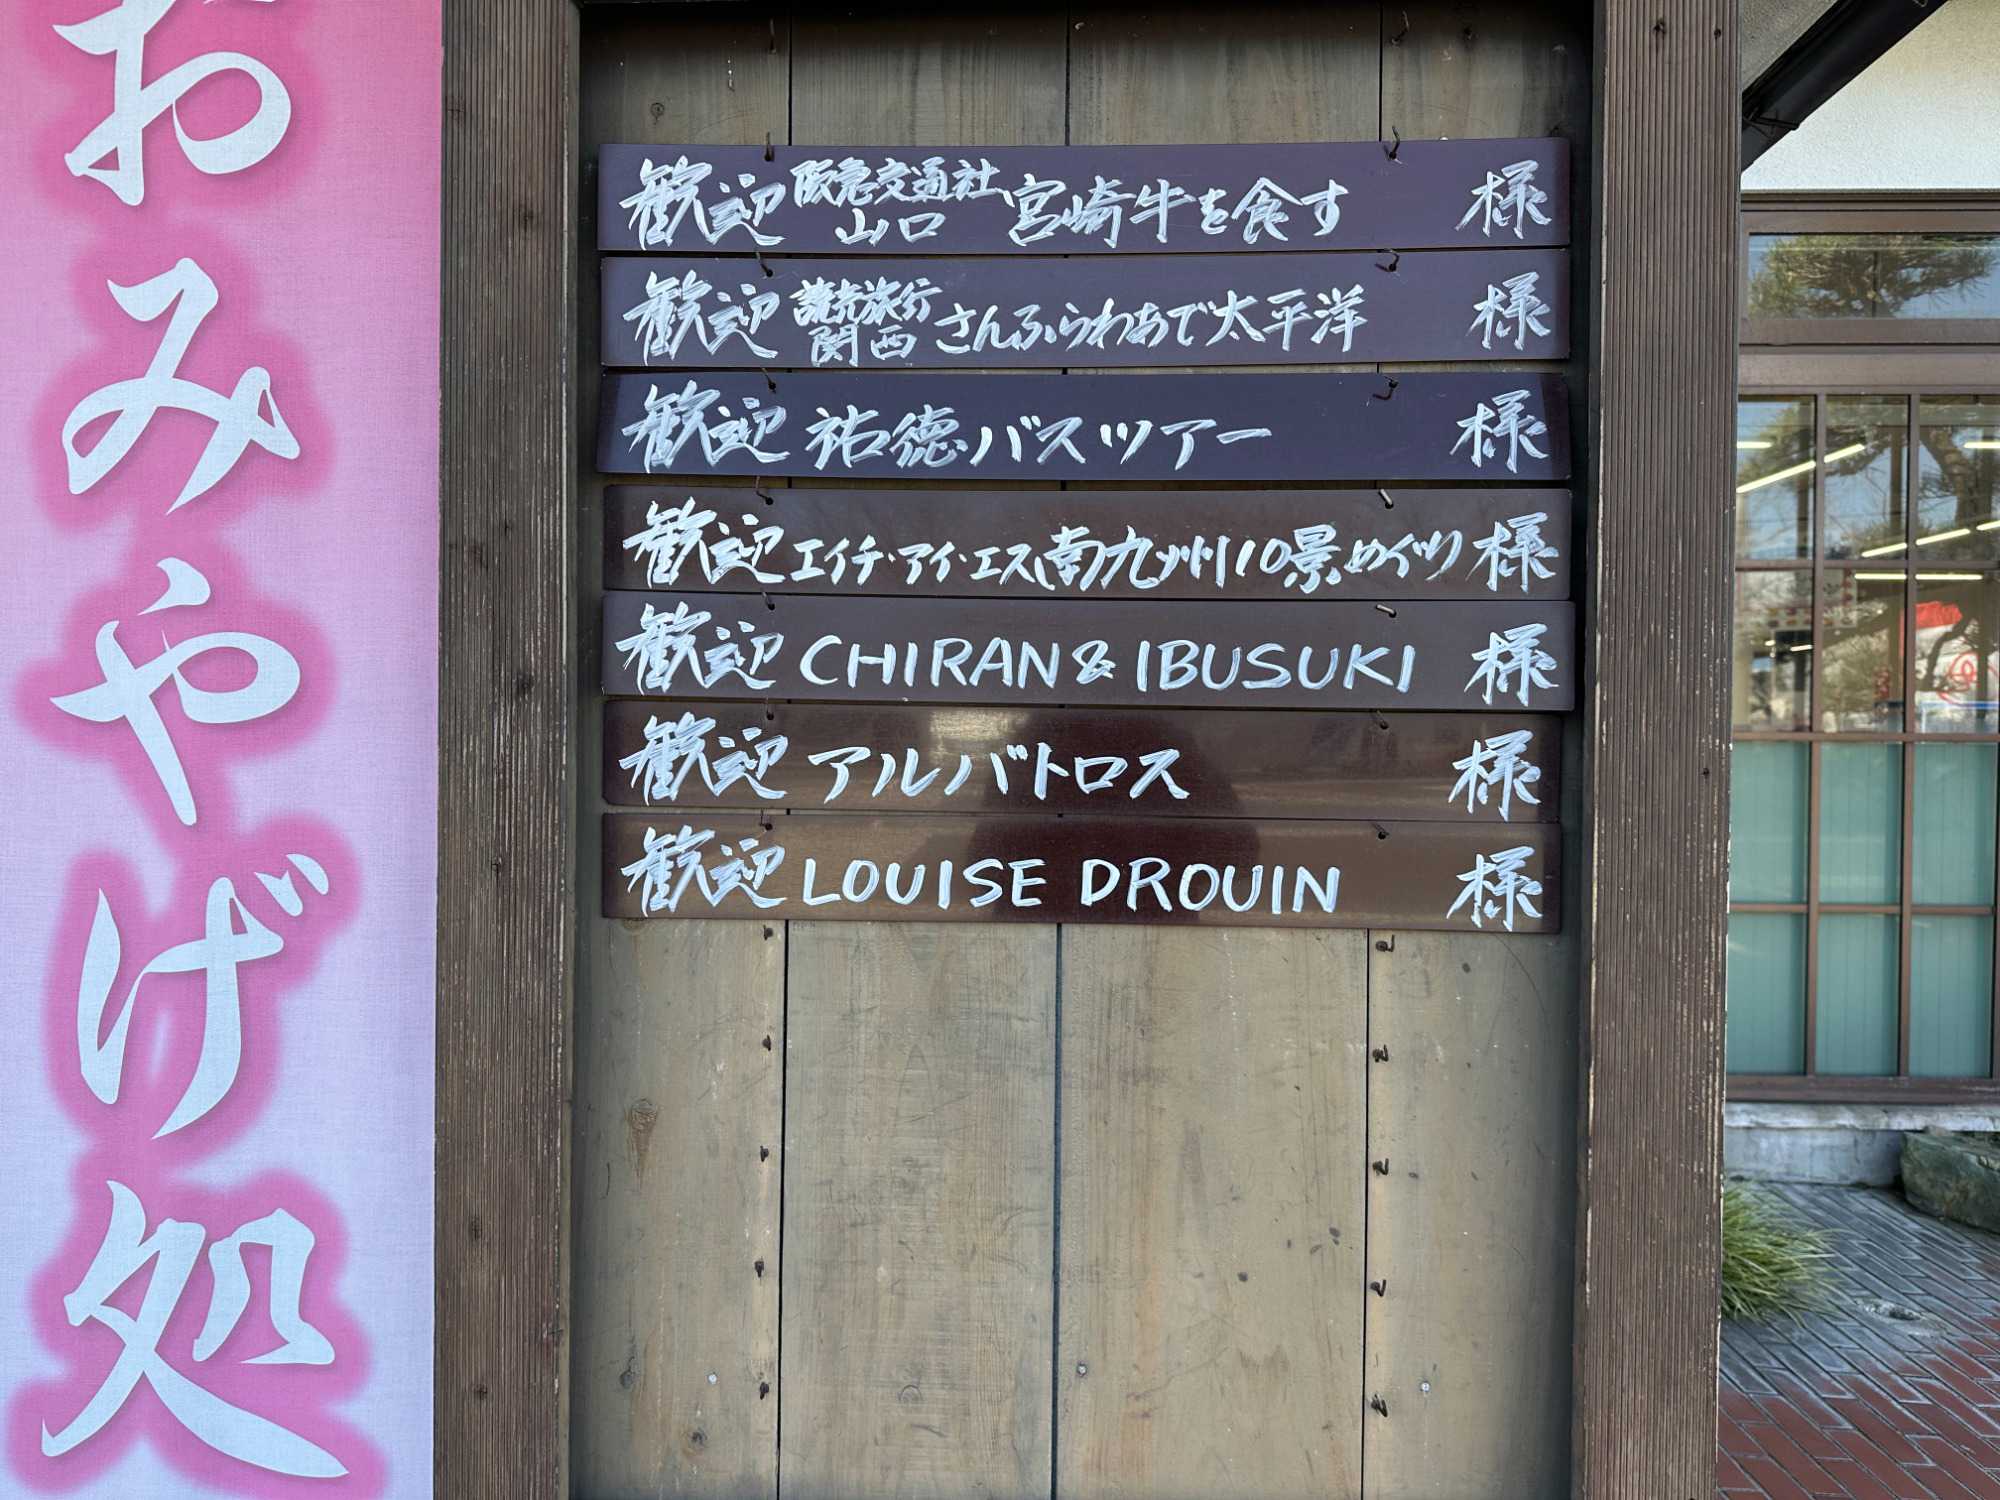 おみやげ処
歓迎 阪急交通社、山口 宮崎牛を食す 様
歓迎 読売旅行 関西 さんふらわあで太平洋 様
歓迎 祐徳バスツアー 様
歓迎 エイチ・アイ・エス、南九州10景めぐり 様
歓迎 CHIRAN & IBUSUKI 様
歓迎 アルバトロス 様
歓迎 LOUISE DROUIN 様